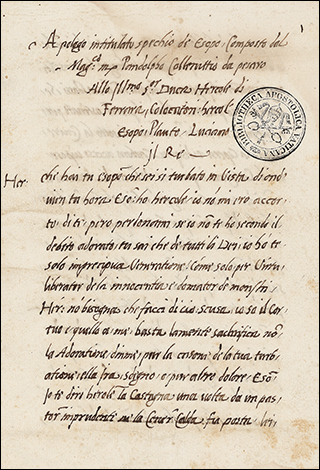 Apologo intitulato specchio de Esopo. Composto dal
Mag.co m. Pandolpho Collenuttio da pesaro
Allo Illmo s.or Duca Hercole di
Ferrara, hercole
Esopo. Plauto. Luciano
Il Re
BIBLIOTHECA APOSTOLICA VATICANA
Her: che hai tu Esopo che sei si turbato in Vista di onde
vien tu hora. Eso: ho hercole io nõ mi ero accor
to di te pero perdonami se io nõ te ho secondo il
debito adorato, tu sai che de tutti li Dei io ho te
solo in precipua Veneratione. Come solo per Unico
liberator de la innocentia e domator de monstri
Her: nõ bisogna che facci di cio scusa, io so il Co
re e quello a me basta la mente sacrifica nõ
la Adoratione, dimmi pur la casone de la tua turb
atione, ella fia, sdegno, o pur altro dolore. Eso:
Io te diro hercole la Castagna una volta da un pas
tor imprudente ne la Cener Calda fu posta